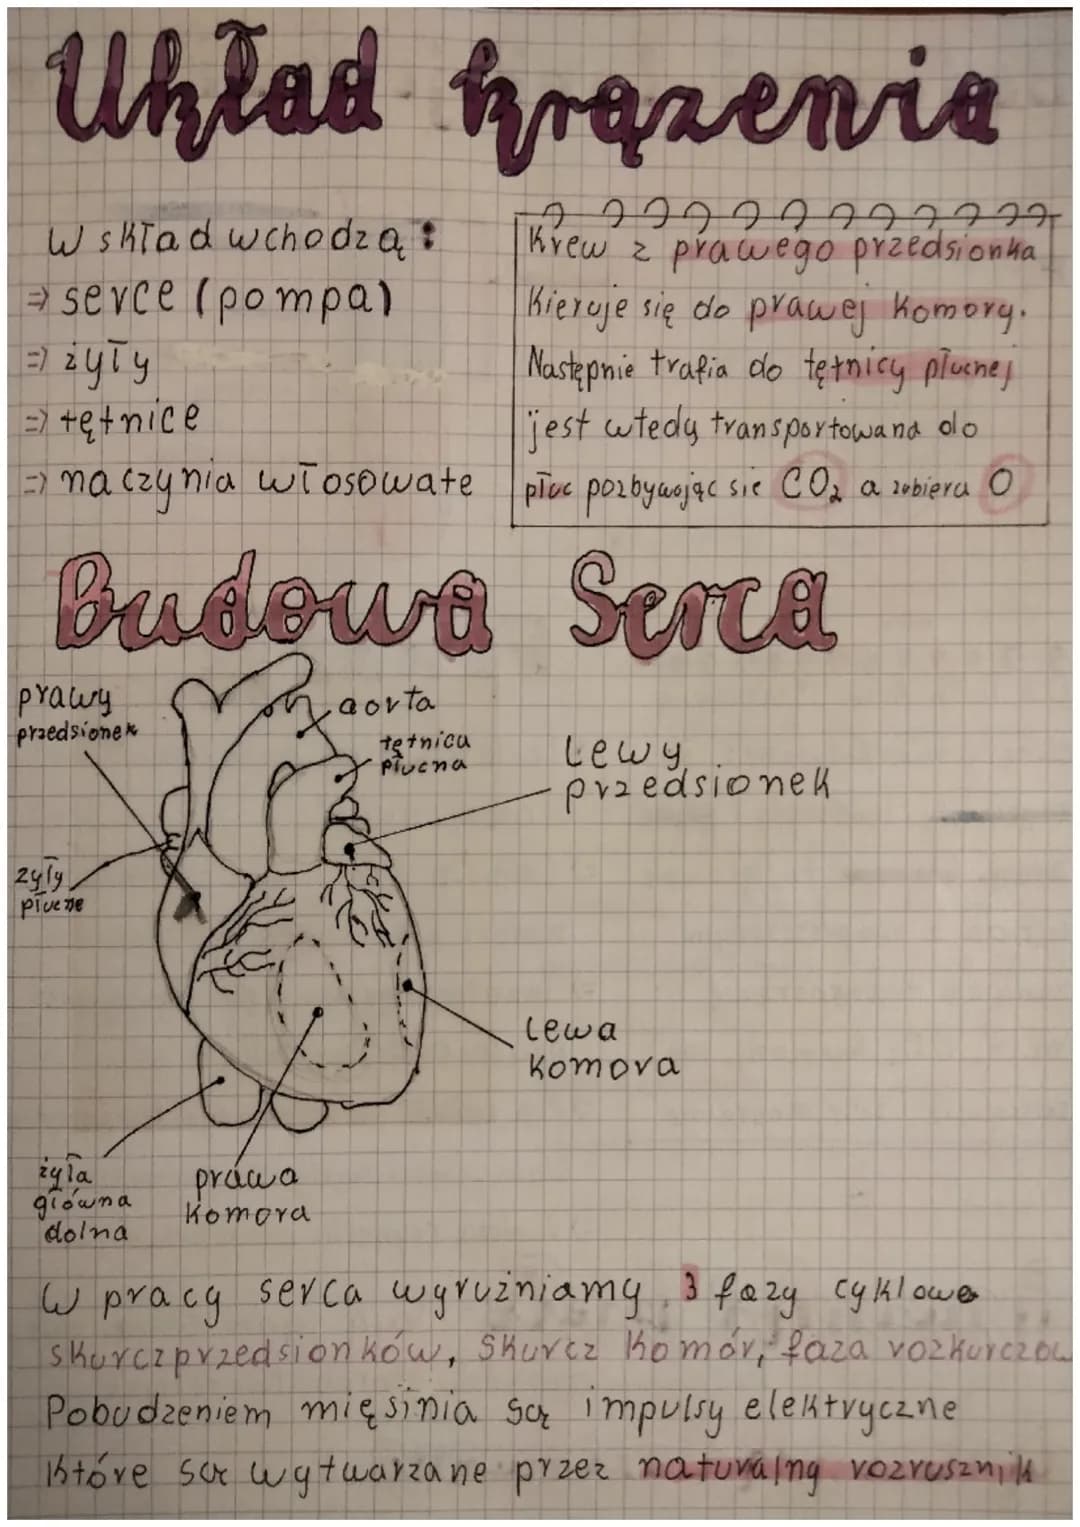 Układ krążenia
W skład wchodzą:
⇒ serce (pompa)
⇒ żyły
⇒ tętnice
⇒ naczynia włosowate
Krew z prawego przedsionka
Kieruje się do prawej Komory.
Następnie trafia do tętnicy płucnej
jest wtedy transportowana do
płuc pozbywając sie CO₂ a zabiera O
Budowa Serca
prawy
przedsionek
aorta
tętnica
płucna
Lewy
przedsionek
żyły
płucne
Lewa
Komora
żyła
główna
dolna
prawa
Komora
W pracy serca wyrużniamy 3 fazy cyklowe
skurcz przedsionków, Skurcz Komór, faza rozkurczow
Pobudzeniem mięsinia są impulsy elektryczne
Które są wytwarzane przez naturalny rozrusznik